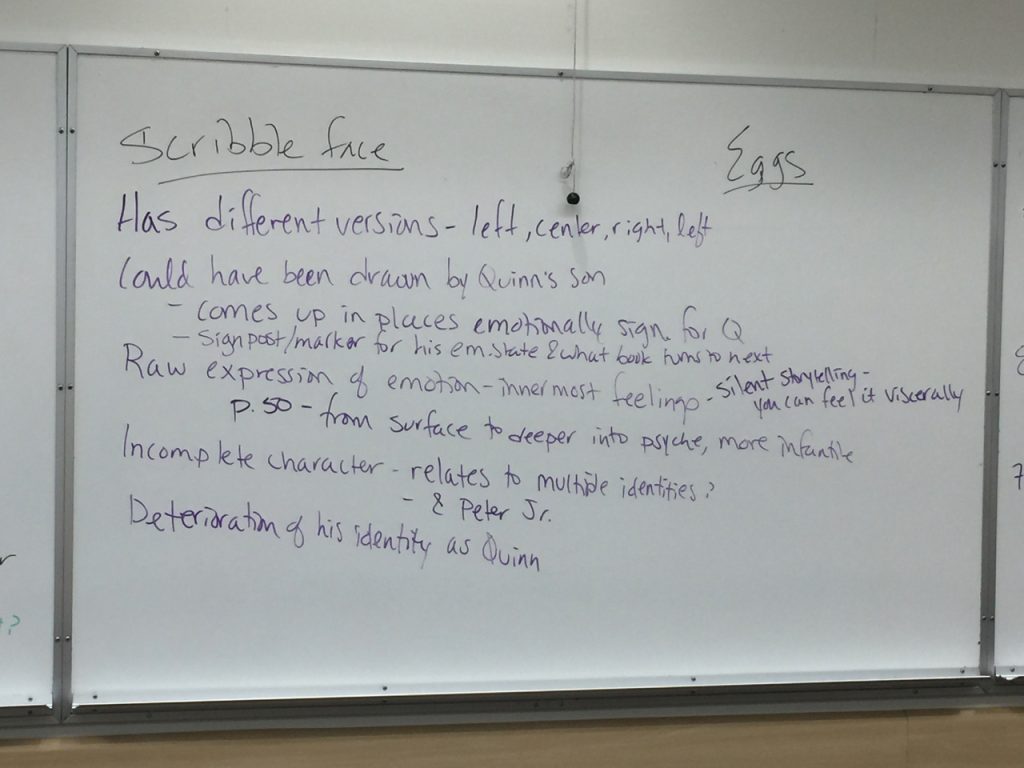 Scribble face
Eggs
Has different versions - left, center, right, left
Could have been drawn by Quinn's son
- comes up in places emotionally sign. for Q
- Signpost/marker for his em. state & what book turns to next
Raw expression of emotion - innermost feelings - silent storytelling -
you can feel it viscerally
p. 50 - from surface to deeper into psyche, more infantile
Incomplete character - relates to multiple identities?
- & Peter Jr.
Deterioration of his identity as Quinn